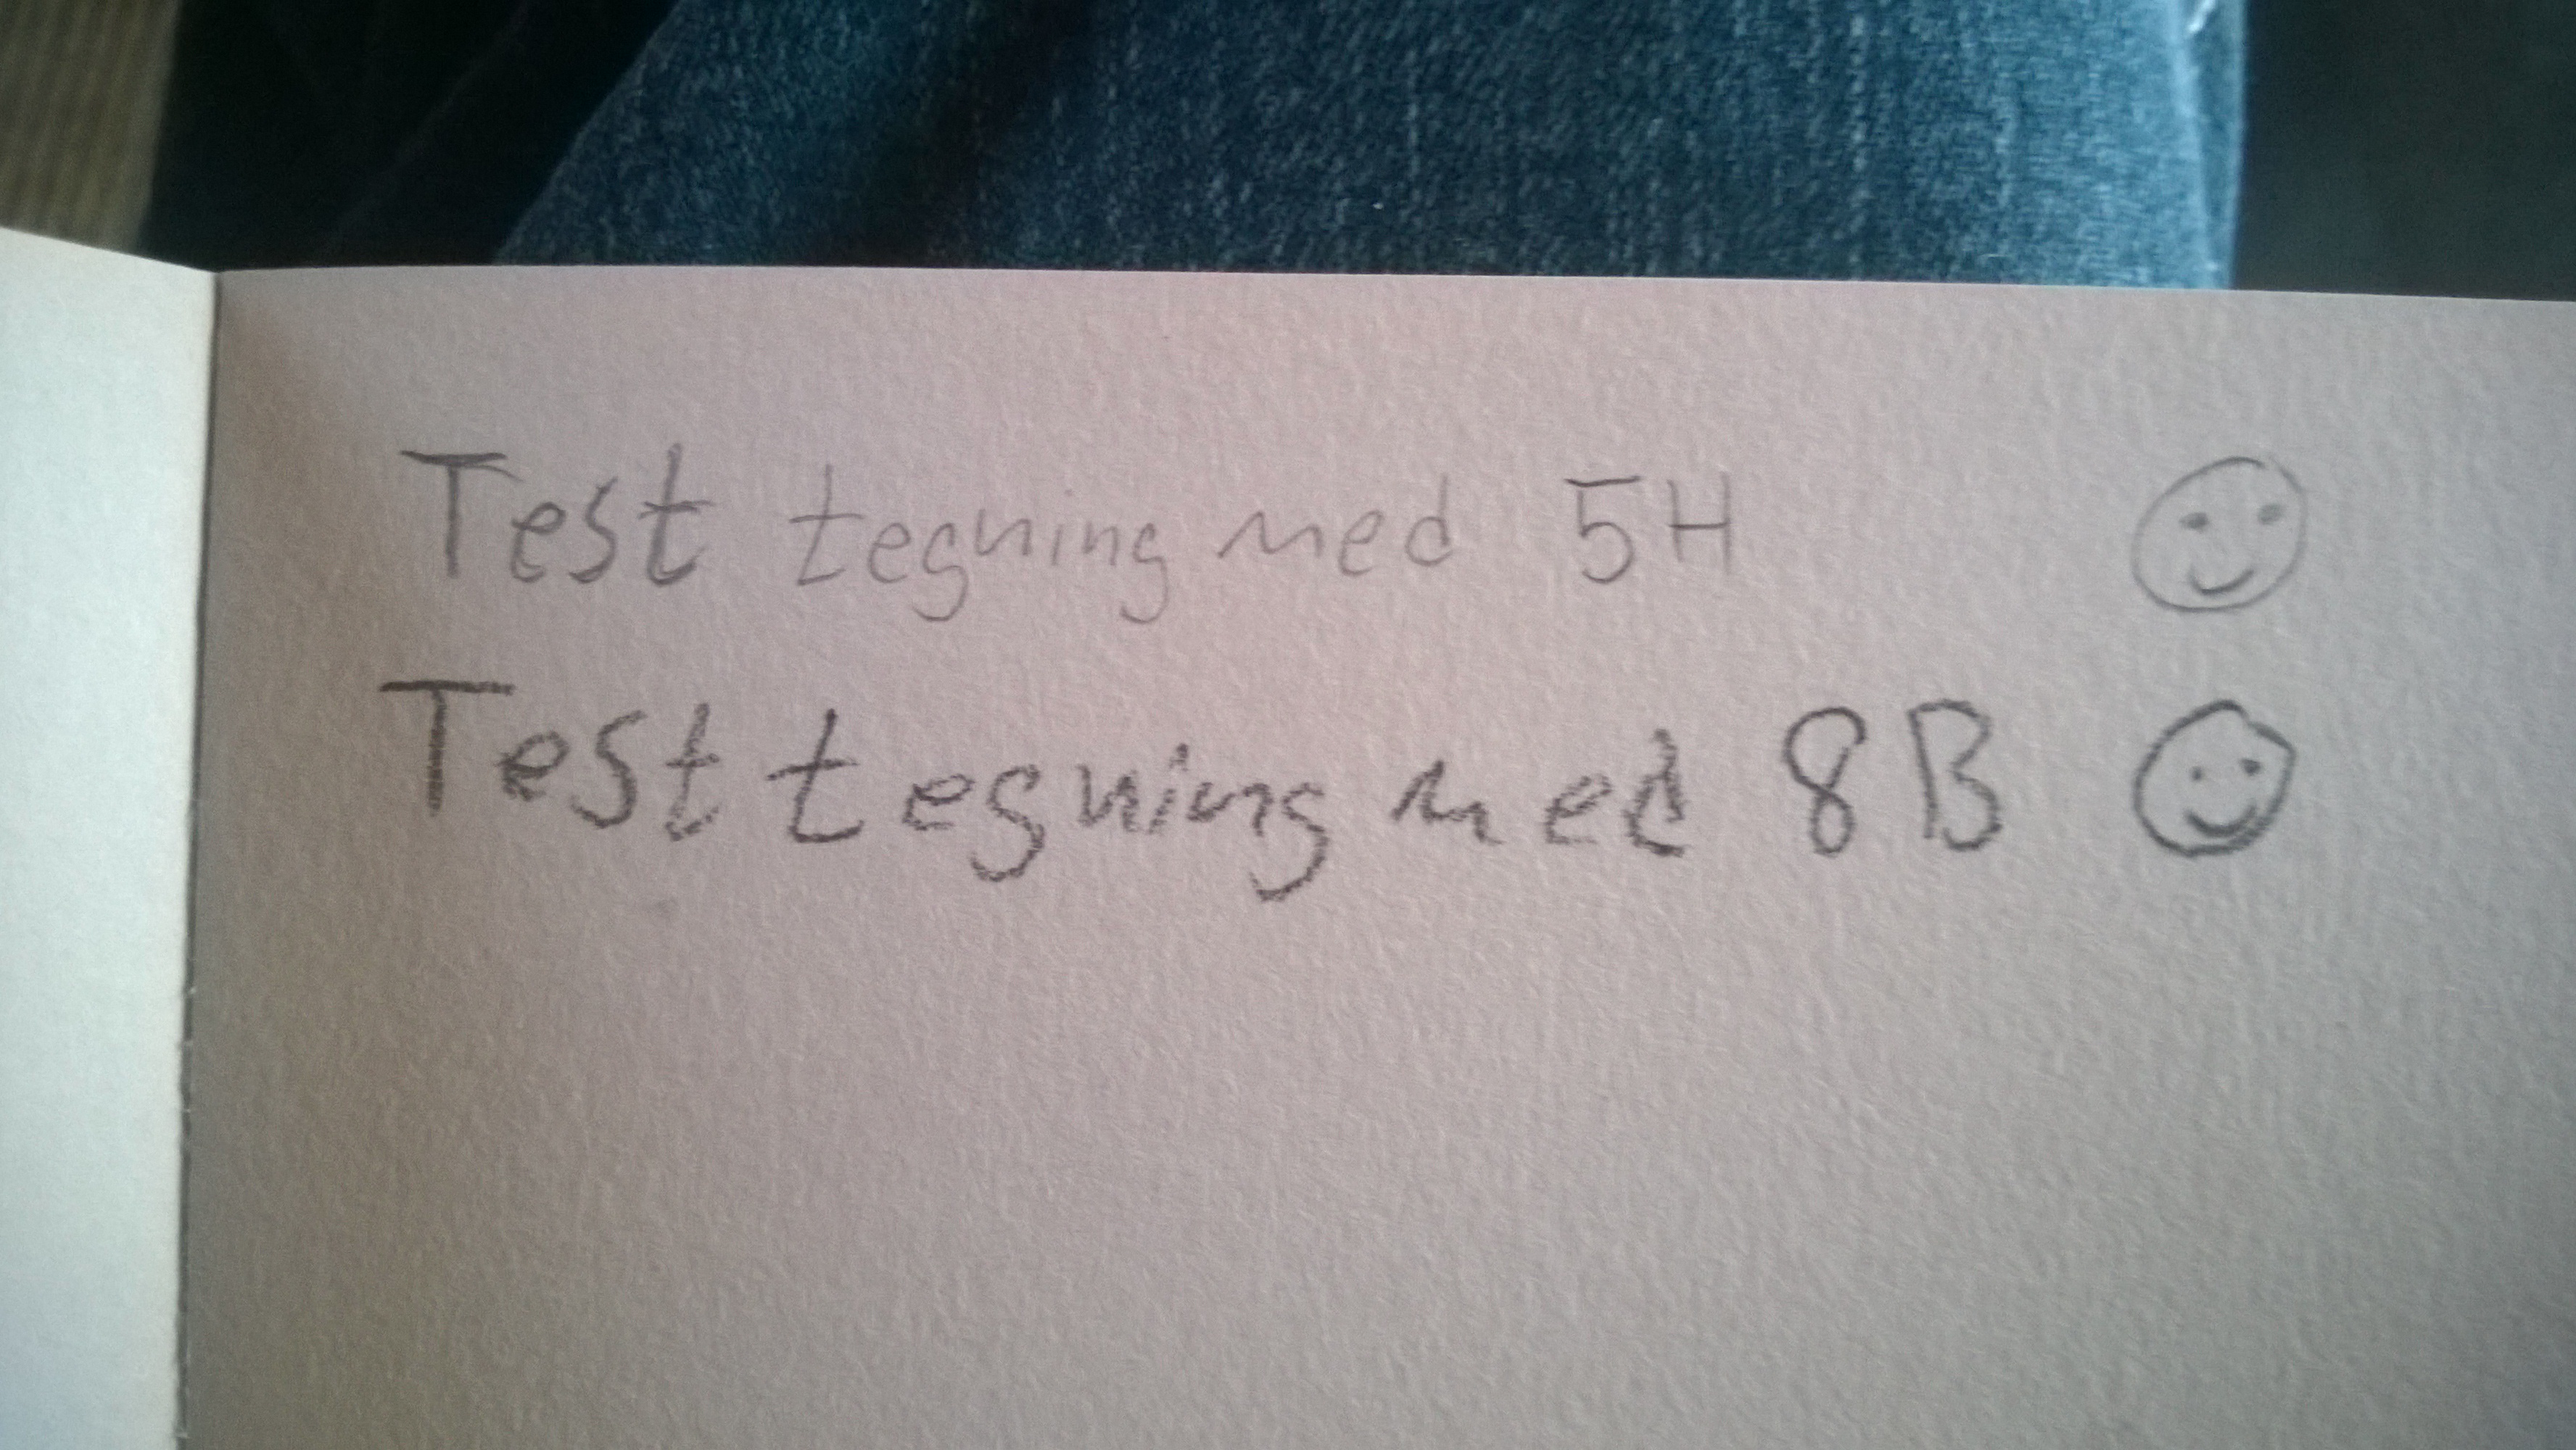 Test tegning med 5H
Test tegning med 8B